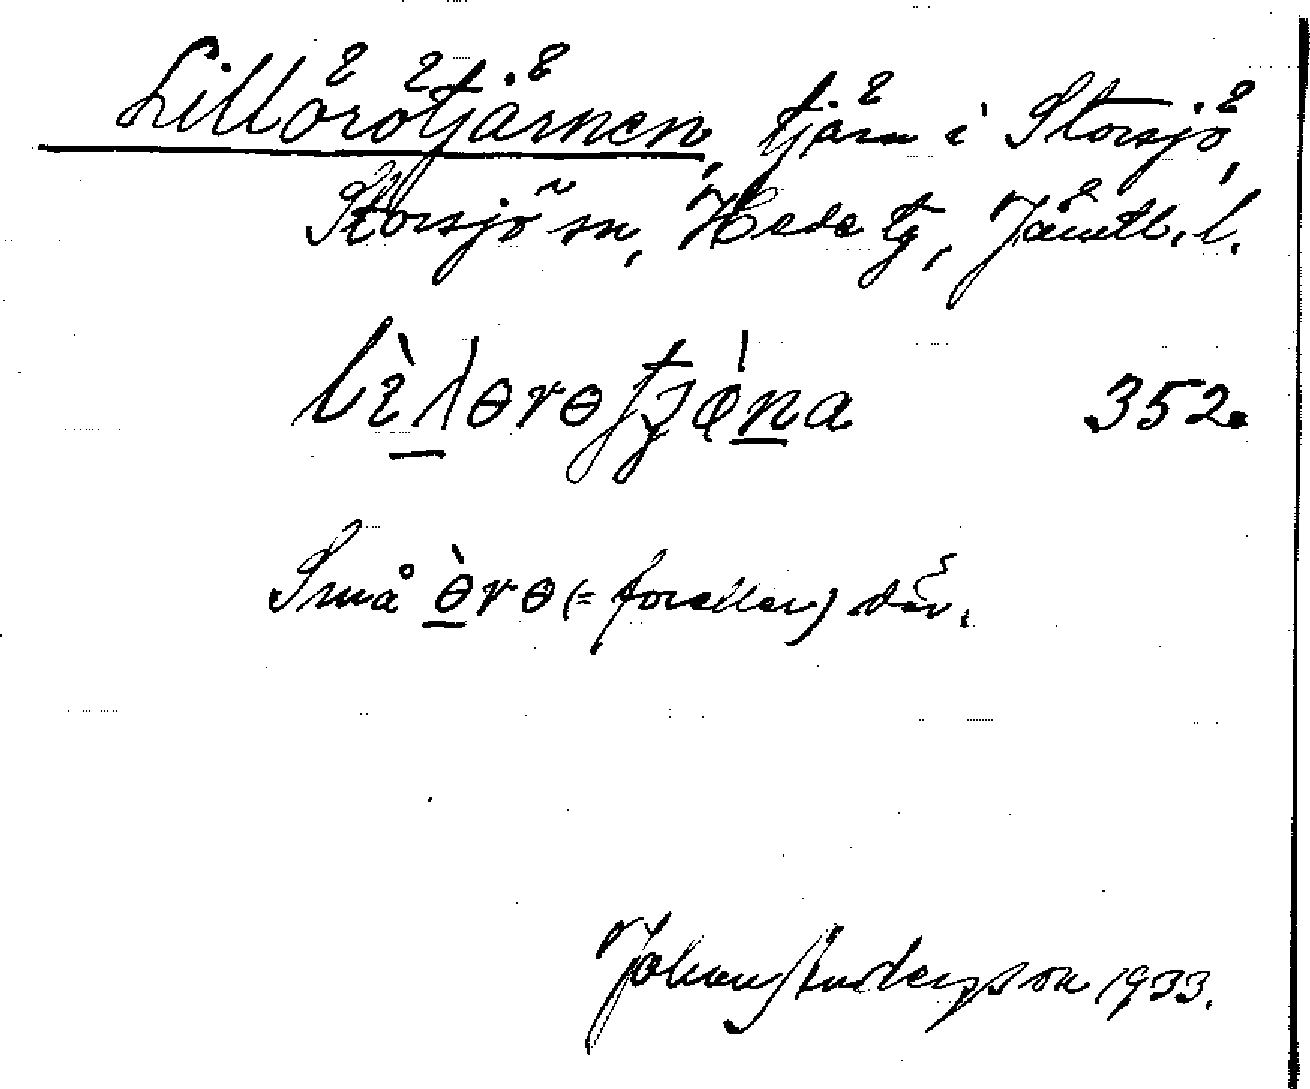 Lillörötjärnen, tjärn i Storsjö,
Storsjö sn, Hede tg, Jämtl. l.
352.
Små ὲrɵ (= foreller) där.
Johan Anderson 1933.